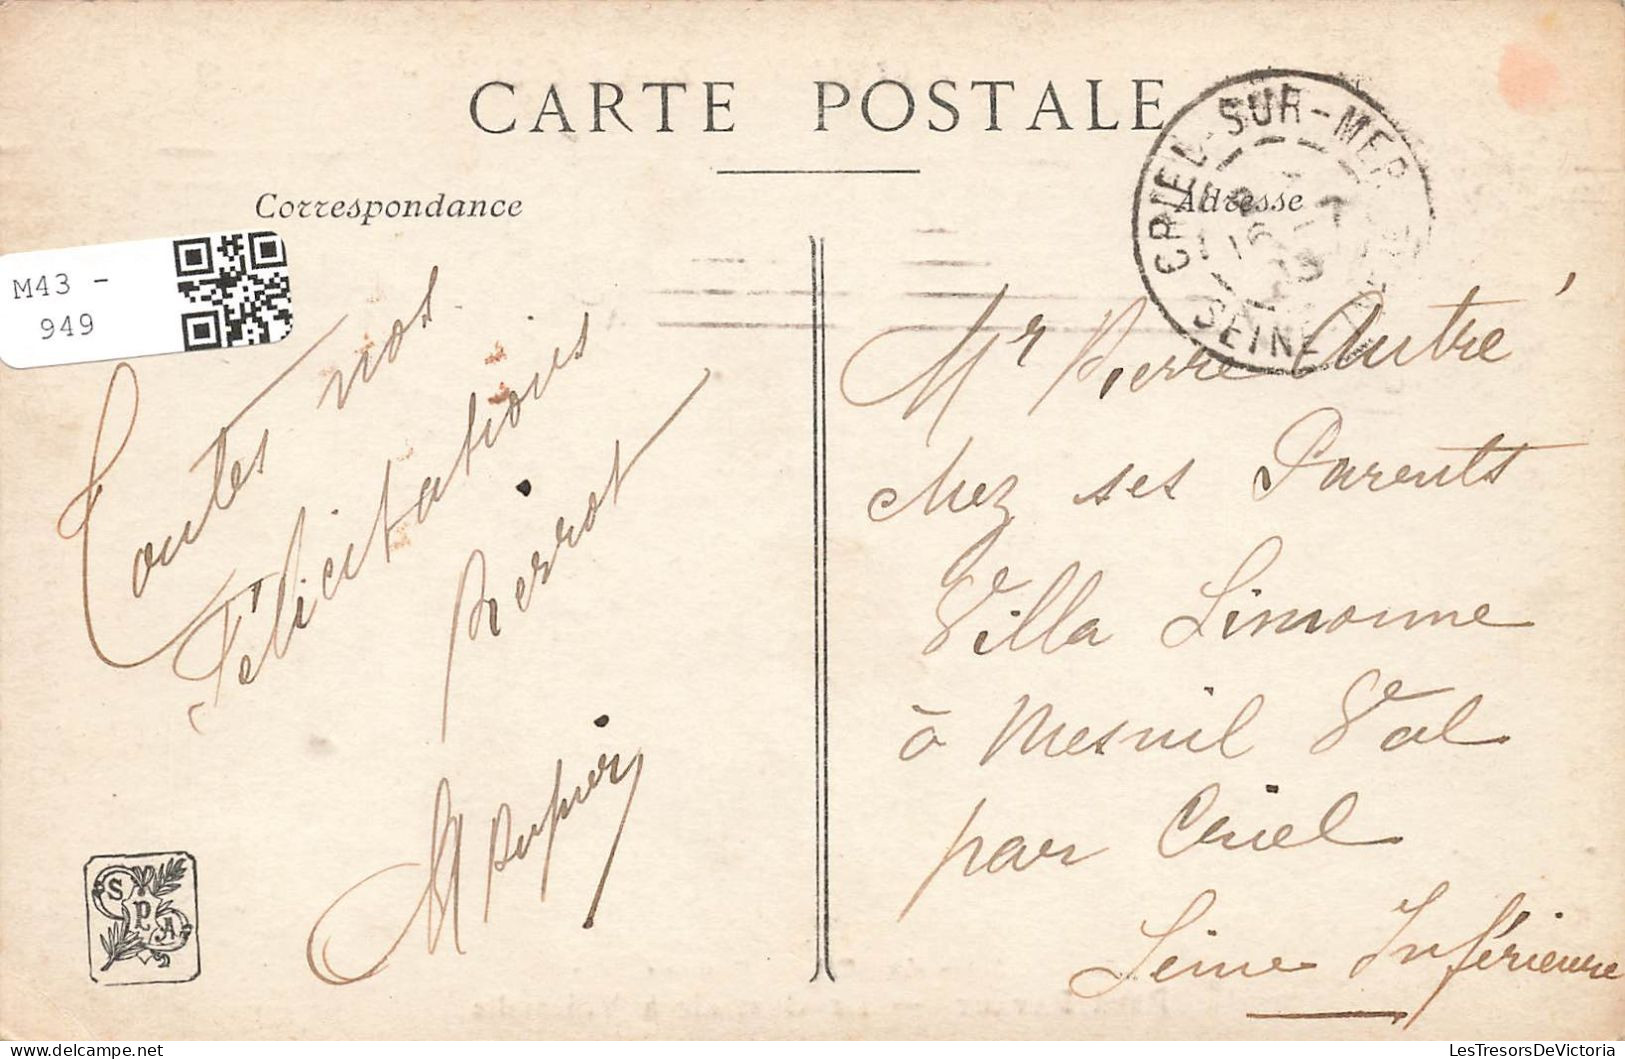 CARTE POSTALE
Correspondance
Adresse
CRIEL-SUR-MER
SEINE-INFRE
M43 -
949
Toutes nos
Félicitations
Pierrot
Mr Pierre Autré
chez ses Parents
Villa Simonne
à Mesnil Val
par Criel
Seine Inférieure
SPA
LesTresorsDeVictoria - Delcampe.net